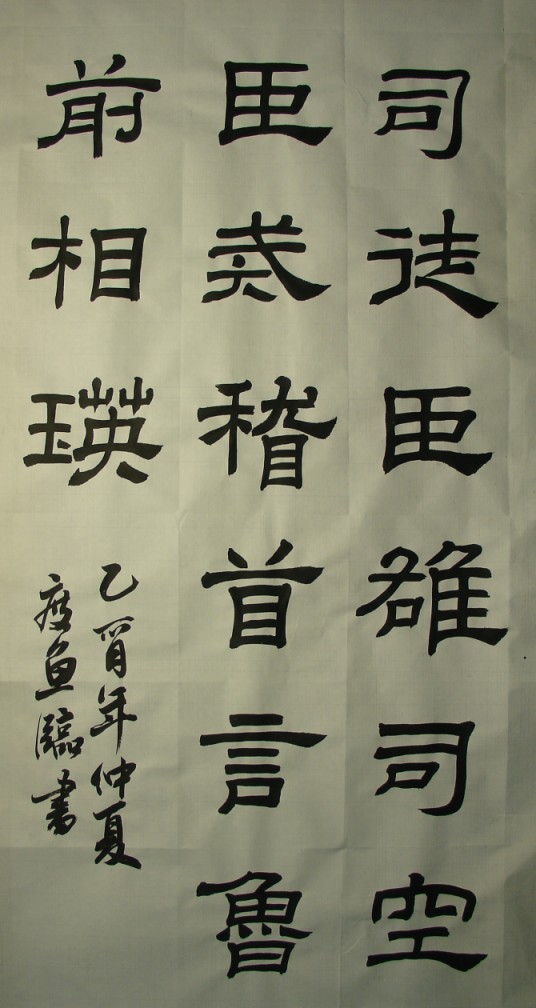 司徒臣雄司空
臣戒稽首言魯
前相瑛
乙酉年仲夏
瘦魚臨書